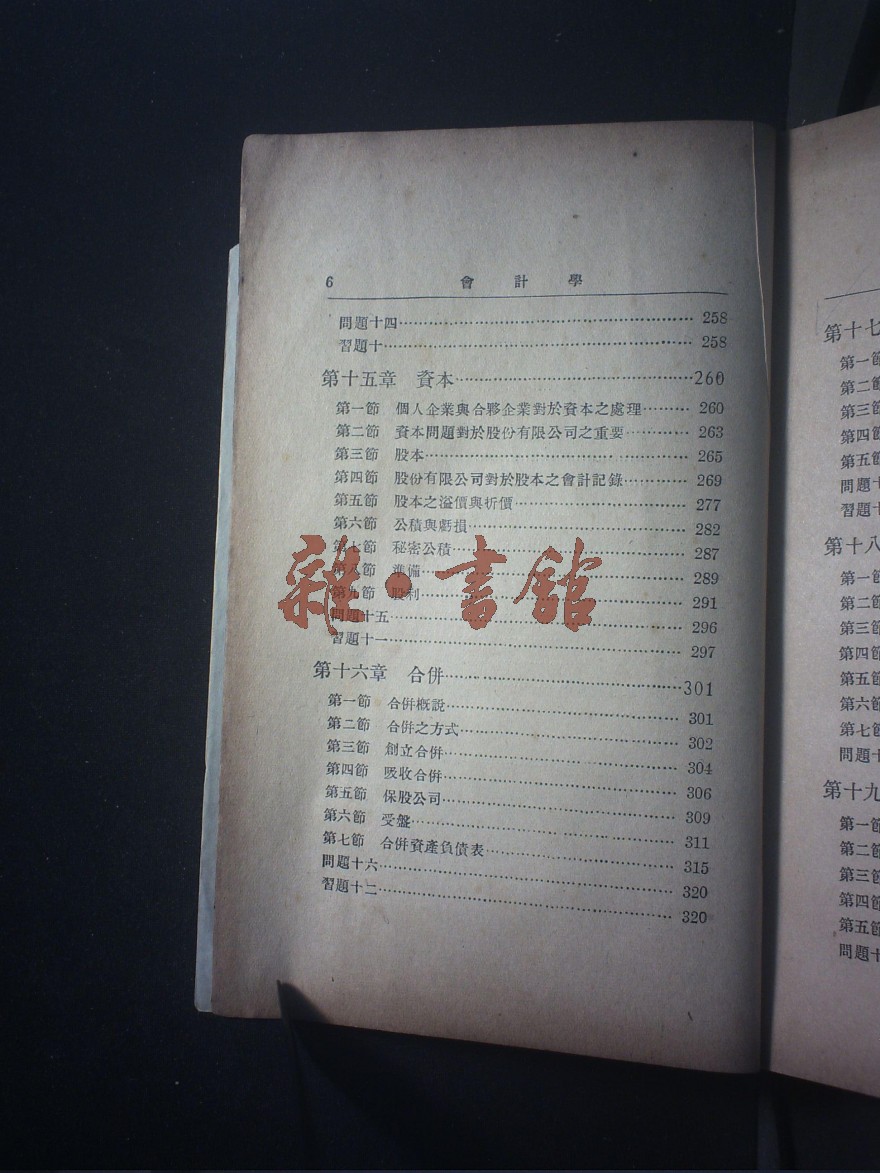 6 會計學
問題十四 258
習題十 258
第十五章 資本 260
第一節 個人企業與合夥企業對於資本之處理 260
第二節 資本問題對於股份有限公司之重要 263
第三節 股本 265
第四節 股份有限公司對於股本之會計記錄 269
第五節 股本之溢價與折價 277
第六節 公積與虧損 282
第七節 秘密公積 287
第八節 準備 289
第九節 股利 291
問題十五 296
習題十一 297
第十六章 合併 301
第一節 合併概說 301
第二節 合併之方式 302
第三節 創立合併 304
第四節 吸收合併 306
第五節 保股公司 309
第六節 受盤 311
第七節 合併資產負債表 315
問題十六 320
習題十二 320
雜·書館
第十七
第一節
第二節
第三節
第四節
第五節
問題十
習題十
第十八
第一節
第二節
第三節
第四節
第五節
第六節
第七節
問題十
第十九
第一節
第二節
第三節
第四節
第五節
問題十